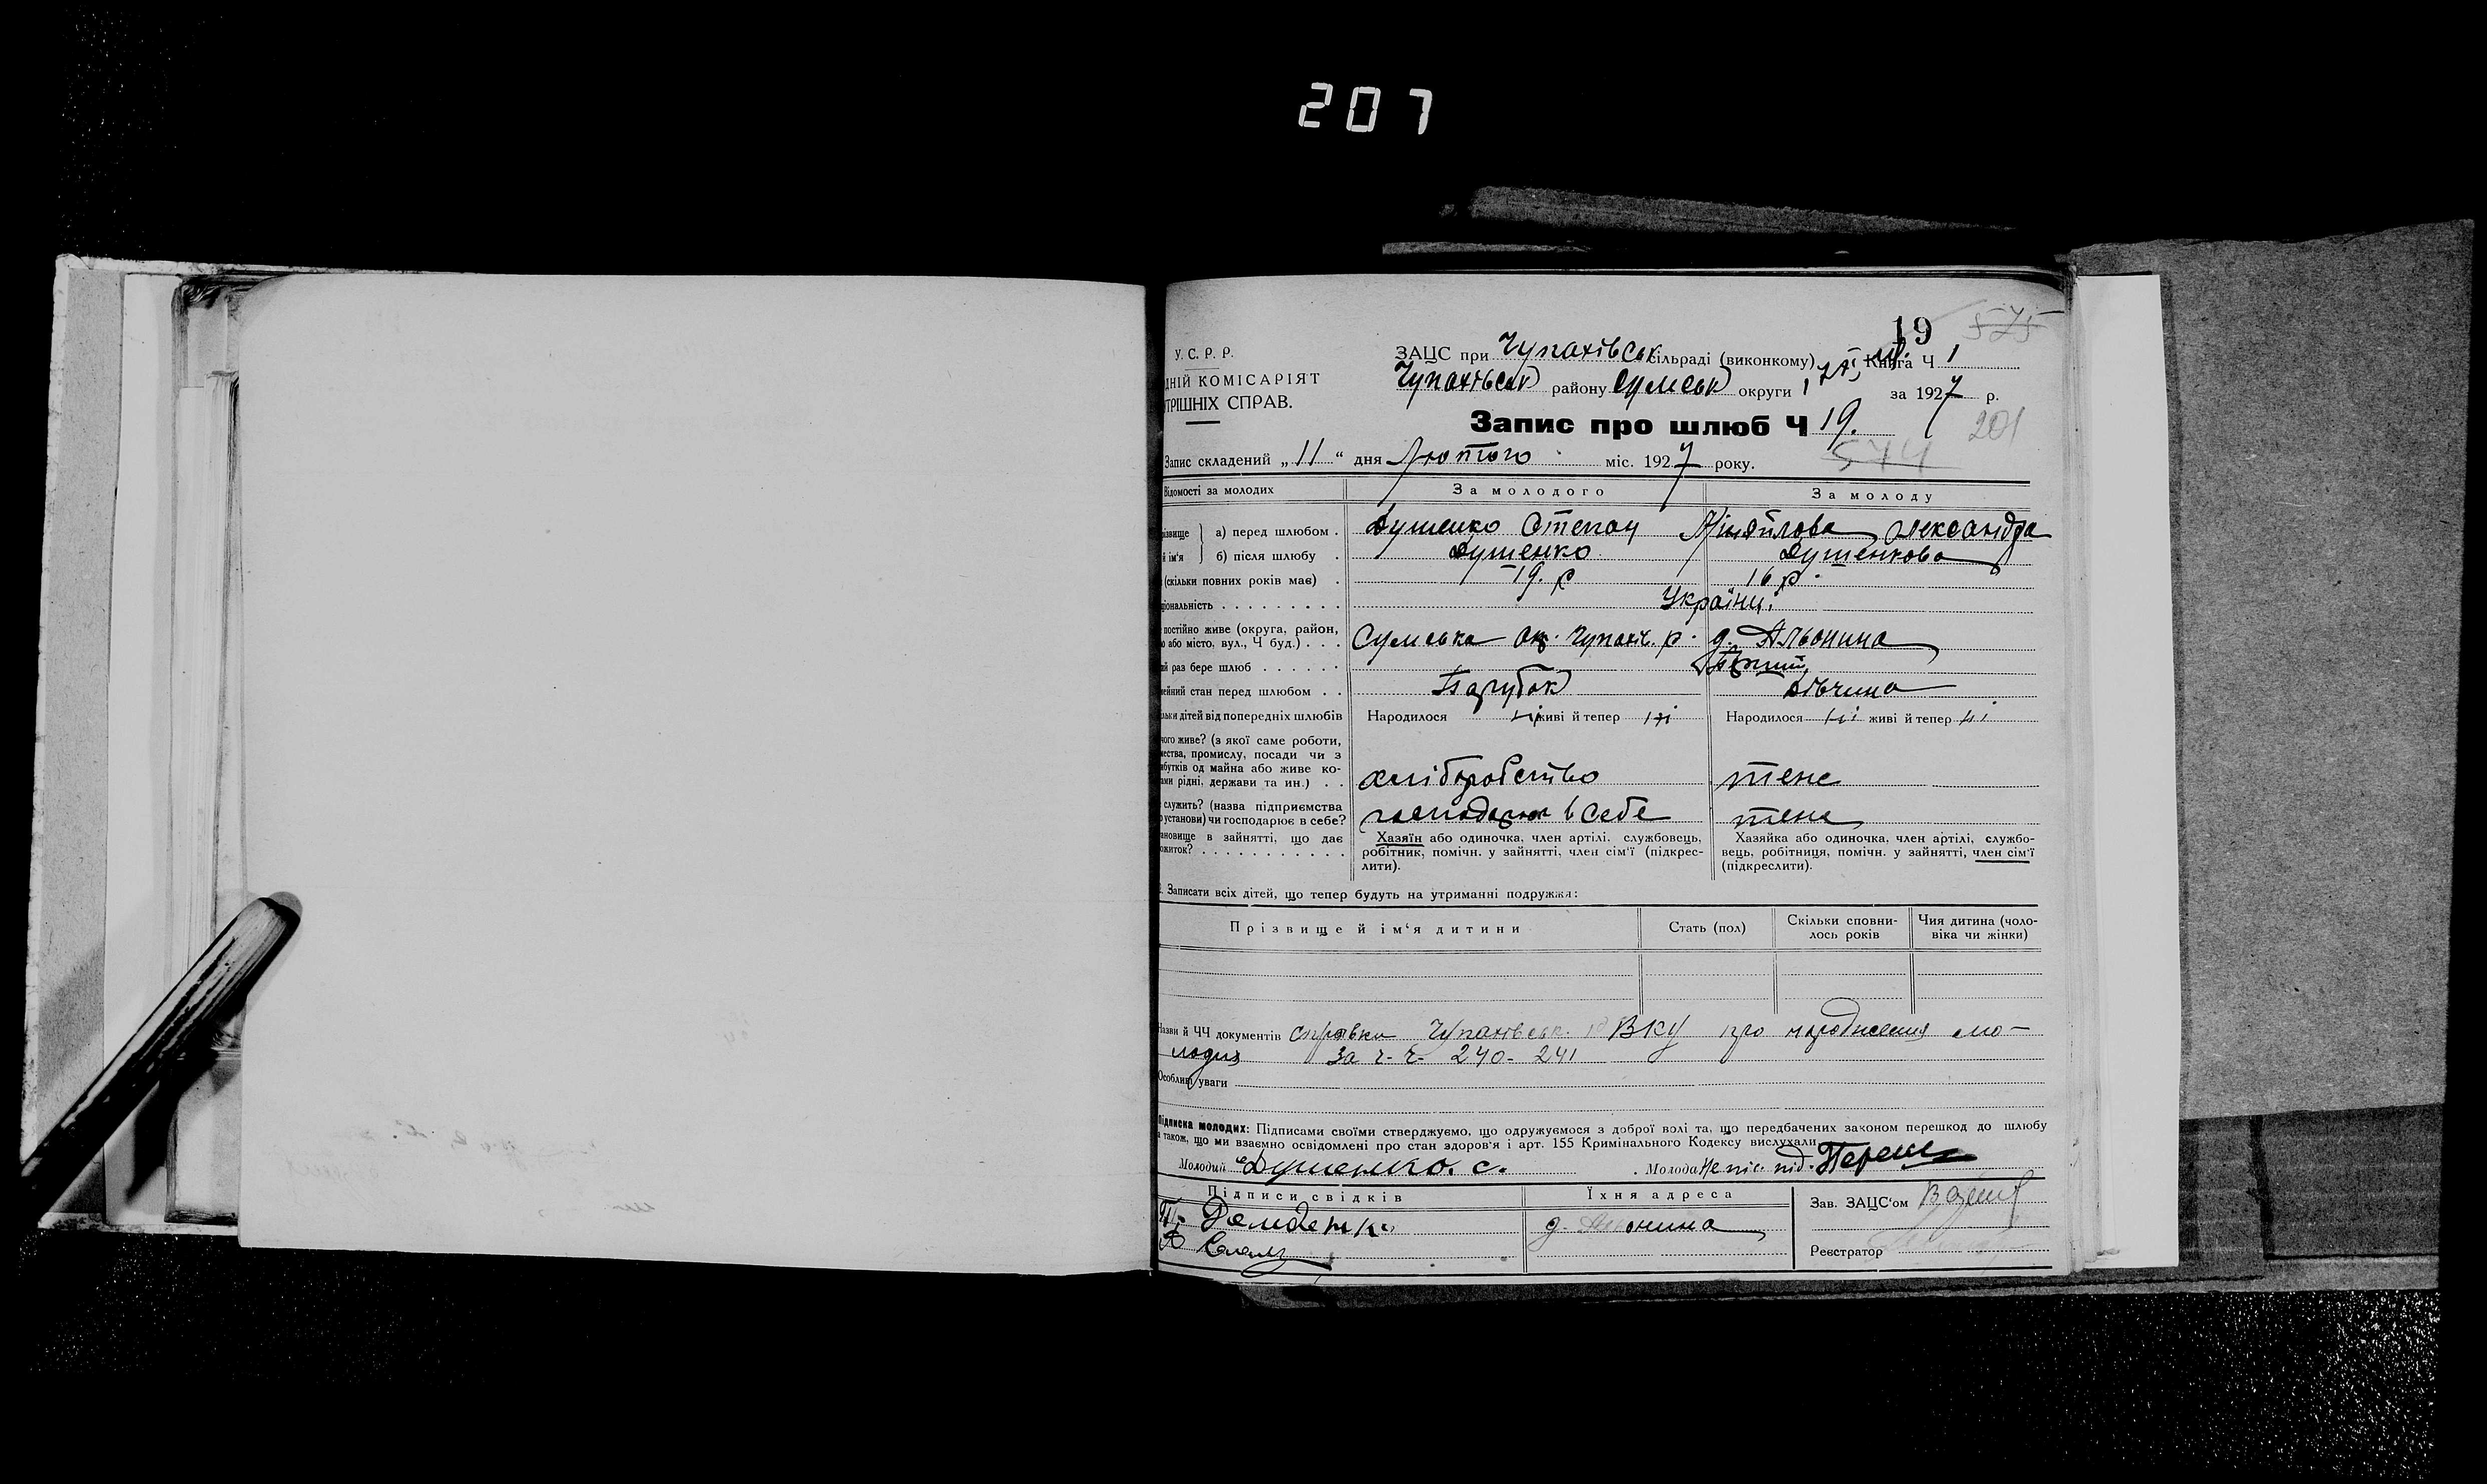 207
19 575
У. С. Р. Р.
ЗАЦС при Чупахівськ сільраді (виконкому) Книга Ч 1
ДНІЙ КОМІСАРІЯТ
Чупахівськ району Сумськ округи за 1927 р.
ТРІШНІХ СПРАВ.
Запис про шлюб Ч 19.
201
574
Запис складений „ 11 “ дня Лютого міс. 1927 року.
Відомості за молодих За молодого За молоду
ізвище а) перед шлюбом . Душенко Степан Михайлова Олександра
й ім'я б) після шлюбу . Душенко Душенкова
(скільки повних років має) . 19. р 16 р.
ціональність . . . . . . . . . Україн.
постійно живе (округа, район,
о або місто, вул., Ч буд.) . . . Сумська ок. Чупахів. р. д. Альонина
ий раз бере шлюб . . . . . .
мейний стан перед шлюбом . . Парубок дівчина
льки дітей від попередніх шлюбів Народилося ні живі й тепер ні Народилося ні живі й тепер ні
чого живе? (з якої саме роботи,
мества, промислу, посади чи з
ибутків од майна або живе ко-
ами рідні, держави та ин.) . . хліборобство теж
служить? (назва підприємства
о установи) чи господарює в себе? господарює в себе теж
ановище в зайнятті, що дає Хазяїн або одиночка, член артілі, службовець, Хазяйка або одиночка, член артілі, службо-
ожиток? . . . . . . . . . . . робітник, помічн. у зайнятті, член сім'ї (підкрес- вець, робітниця, помічн. у зайнятті, член сім'ї
лити). (підкреслити).
Записати всіх дітей, що тепер будуть на утриманні подружжя:
Прізвище й ім'я дитини Стать (пол) Скільки сповни- Чия дитина (чоло-
лось років віка чи жінки)
Назви й ЧЧ документів справки Чупахівськ. ВКУ про народження мо-
лодих за ч. ч. 240-241
Особливі уваги
Підписка молодих: Підписами своїми стверджуємо, що одружуємося з доброї волі та, що передбачених законом перешкод до шлюбу
а також, що ми взаємно освідомлені про стан здоров'я і арт. 155 Кримінального Кодексу вислухали
Молодий Душенко. С. Молода
Підписи свідків Їхня адреса Зав. ЗАЦС'ом
д. Альонина
Реєстратор